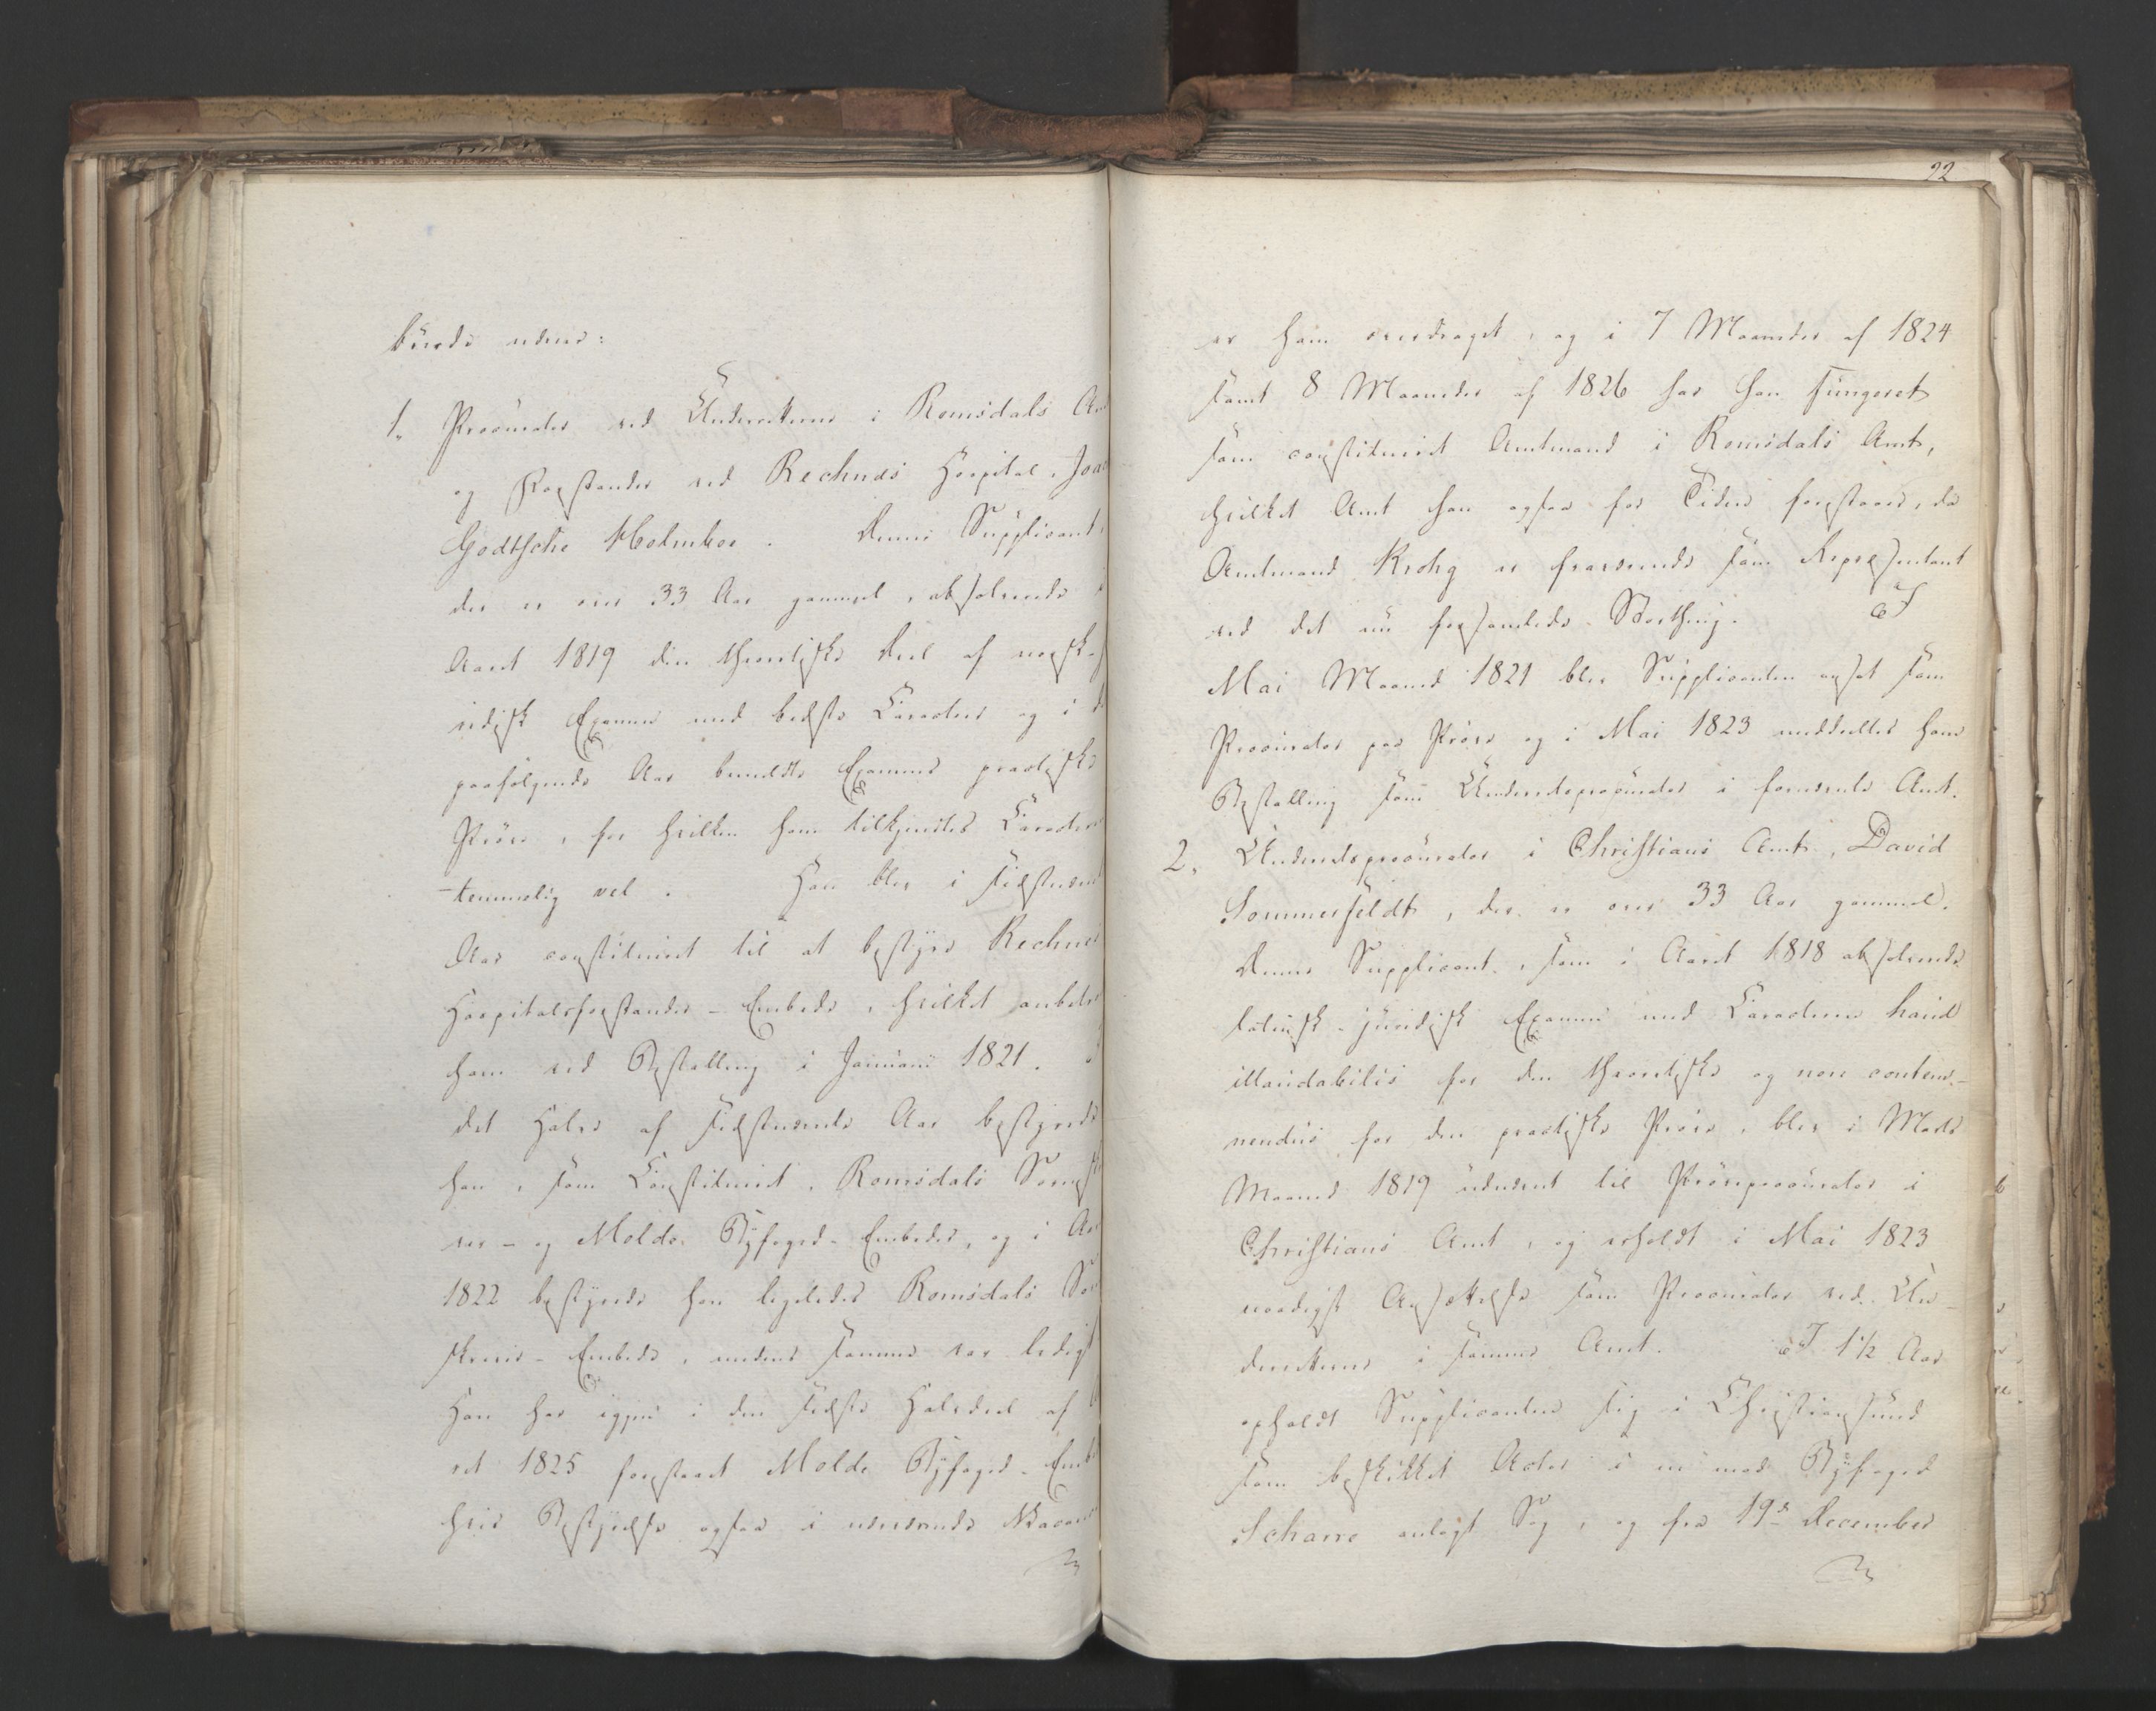 burde udnævnes:
1. Procurator ved Underretterne i Romsdals Amt
og Forstander ved Rechnæs Hospital,
Godtsche Holmboe. Denne Supplicant,
der er over 33 Aar gammel, absolverede
Aaret 1819 den theoretiske Deel af norsk-
ridisk Examen med bedste Caracteer og i
paafølgende Aar bemeldte Examens practiske
Prøve, for hvilken ham tilkjendtes Caracteren
temmelig vel. Han blev i sidstnævnte
Aar constitueret til at bestyre Rechnæs
Hospitalsforstander-Embede, hvilket
ham ved Bestalling i Januari 1821.
det Halve af sidstnævnte Aar bestyrede
han, som Constitueret, Romsdals Sorenskri-
ver- og Molde Byfoged-Embeder, og i Aaret
1822 bestyrede han ligeledes Romsdals Soren-
skriver-Embede, medens samme var ledigt
Han har igjen i den sidste Halvdeel af
ret 1825 forestaaet Molde Byfoged-Embede
hvis Bestyrelse ogsaa i nærværende Vacance
22
er ham overdraget, og i 7 Maaneder af 1824
samt 8 Maaneder af 1826 har han fungeret
som constitueret Amtmand i Romsdals Amt,
hvilket Amt han ogsaa for Tiden forestaaer, da
Amtmand Krohg er fraværende som Repræsentant
ved det nu forsamlede Storthing. I
Mai Maaned 1821 blev Supplicanten ansat som
Procurator paa Prøve og i Mai 1823 meddeeltes ham
Bestalling som Underretsprocurator i fornævnte Amt.
2. Underretsprocurator i Christians Amt, David
Sommerfeldt, der er over 33 Aar gammel.
Denne Supplicant, som i Aaret 1818 absolverede
latinsk-juridisk Examen med Caracteren haud
illaudabilis for den theoretiske og non contem-
nendus for den practiske Prøve, blev i Marts
Maaned 1819 udnævnt til Prøveprocurator i
Christians Amt, og erholdt i Mai 1823
naadigst Ansættelse som Procurator ved Un-
derretterne i samme Amt. I 1½ Aar
opholdt Supplicanten sig i Christiansund
som beskikket Actor i en mod Byfoged
Scharre anlagt Sag, og fra 19de December